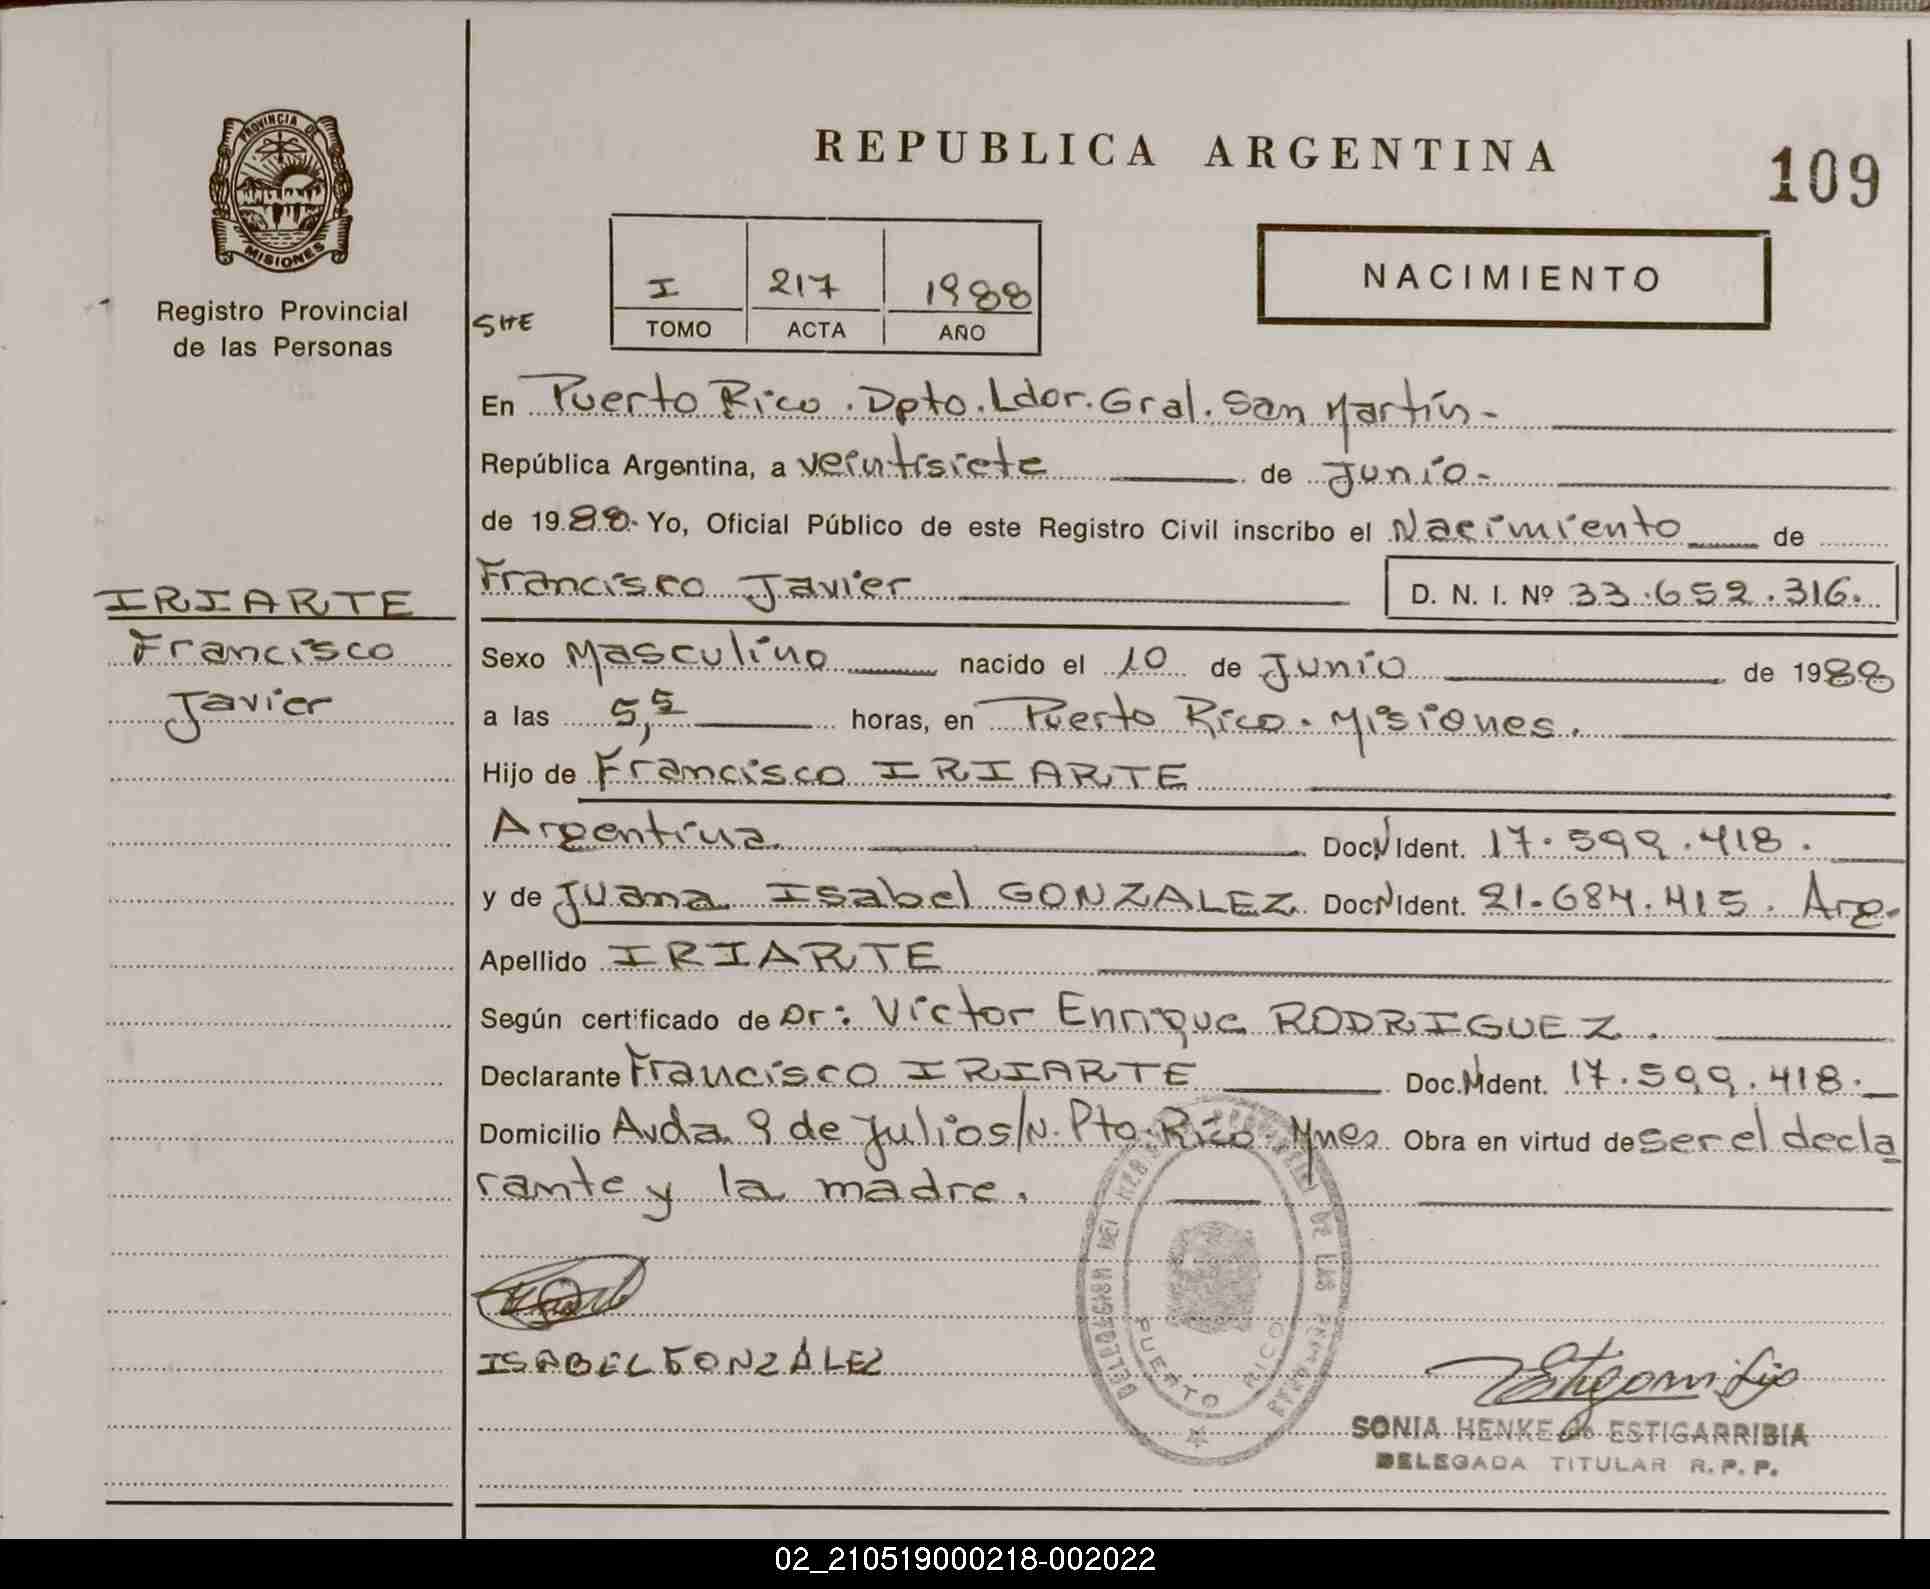 PROVINCIA DE
MISIONES
Registro Provincial
de las Personas
IRIARTE
Francisco
Javier
REPUBLICA ARGENTINA
109
NACIMIENTO
I 217 1988
TOMO ACTA AÑO
SHE
En Puerto Rico. Dpto. Ldor. Gral. San Martín-
República Argentina, a veintisiete de Junio-
de 1988- Yo, Oficial Público de este Registro Civil inscribo el Nacimiento de
Francisco Javier D. N. I. Nº 33.652.316.
Sexo Masculino nacido el 10 de Junio de 1988
a las 5,5 horas, en Puerto Rico. Misiones.
Hijo de Francisco IRIARTE
Argentina Doc. N Ident. 17.599.418.
y de Juana Isabel GONZALEZ Doc. N Ident. 21.684.415. Arg.
Apellido IRIARTE
Según certificado de Dr: Victor Enrique RODRIGUEZ.
Declarante Francisco IRIARTE Doc. N Ident. 17.599.418.
Domicilio Avda. 9 de Julio s/N. Pto. Rico. Mnes. Obra en virtud de ser el decla
rante y la madre.
ISABEL GONZALEZ
DELEGACION DEL DE LAS PERSONAS
PUERTO RICO
SONIA HENKE de ESTIGARRIBIA
DELEGADA TITULAR R. P. P.
02_210519000218-002022